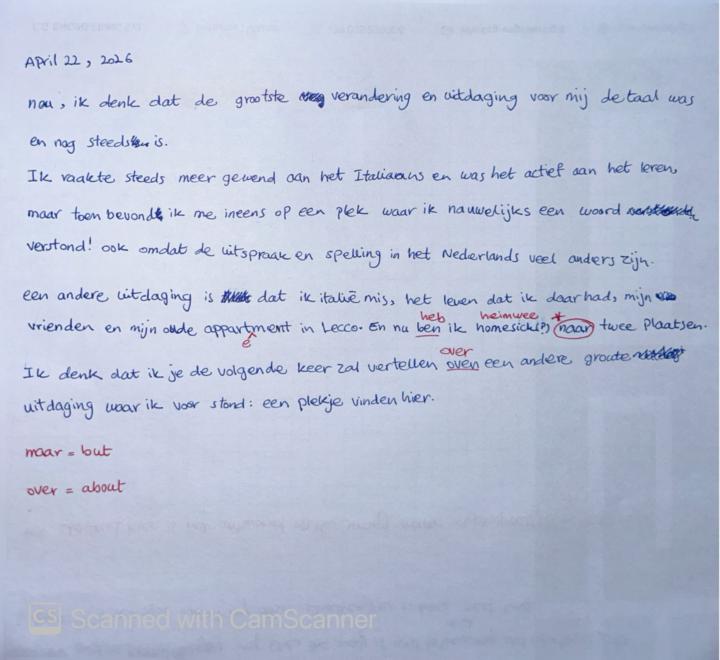 April 22, 2026
nou, ik denk dat de grootste verandering en uitdaging voor mij de taal was
en nog steeds is.
Ik raakte steeds meer gewend aan het Italiaans en was het actief aan het leren,
maar toen bevond ik me ineens op een plek waar ik nauwelijks een woord
verstond! ook omdat de uitspraak en spelling in het Nederlands veel anders zijn.
een andere uitdaging is dat ik italië mis, het leven dat ik daar had, mijn
heb heimwee *
vrienden en mijn oude appartment in Lecco. En nu ben ik homesick(?) naar twee plaatsen.
e
over
Ik denk dat ik je de volgende keer zal vertellen oven een andere groute
uitdaging waar ik voor stond: een plekje vinden hier.
maar = but
over = about
CS Scanned with CamScanner